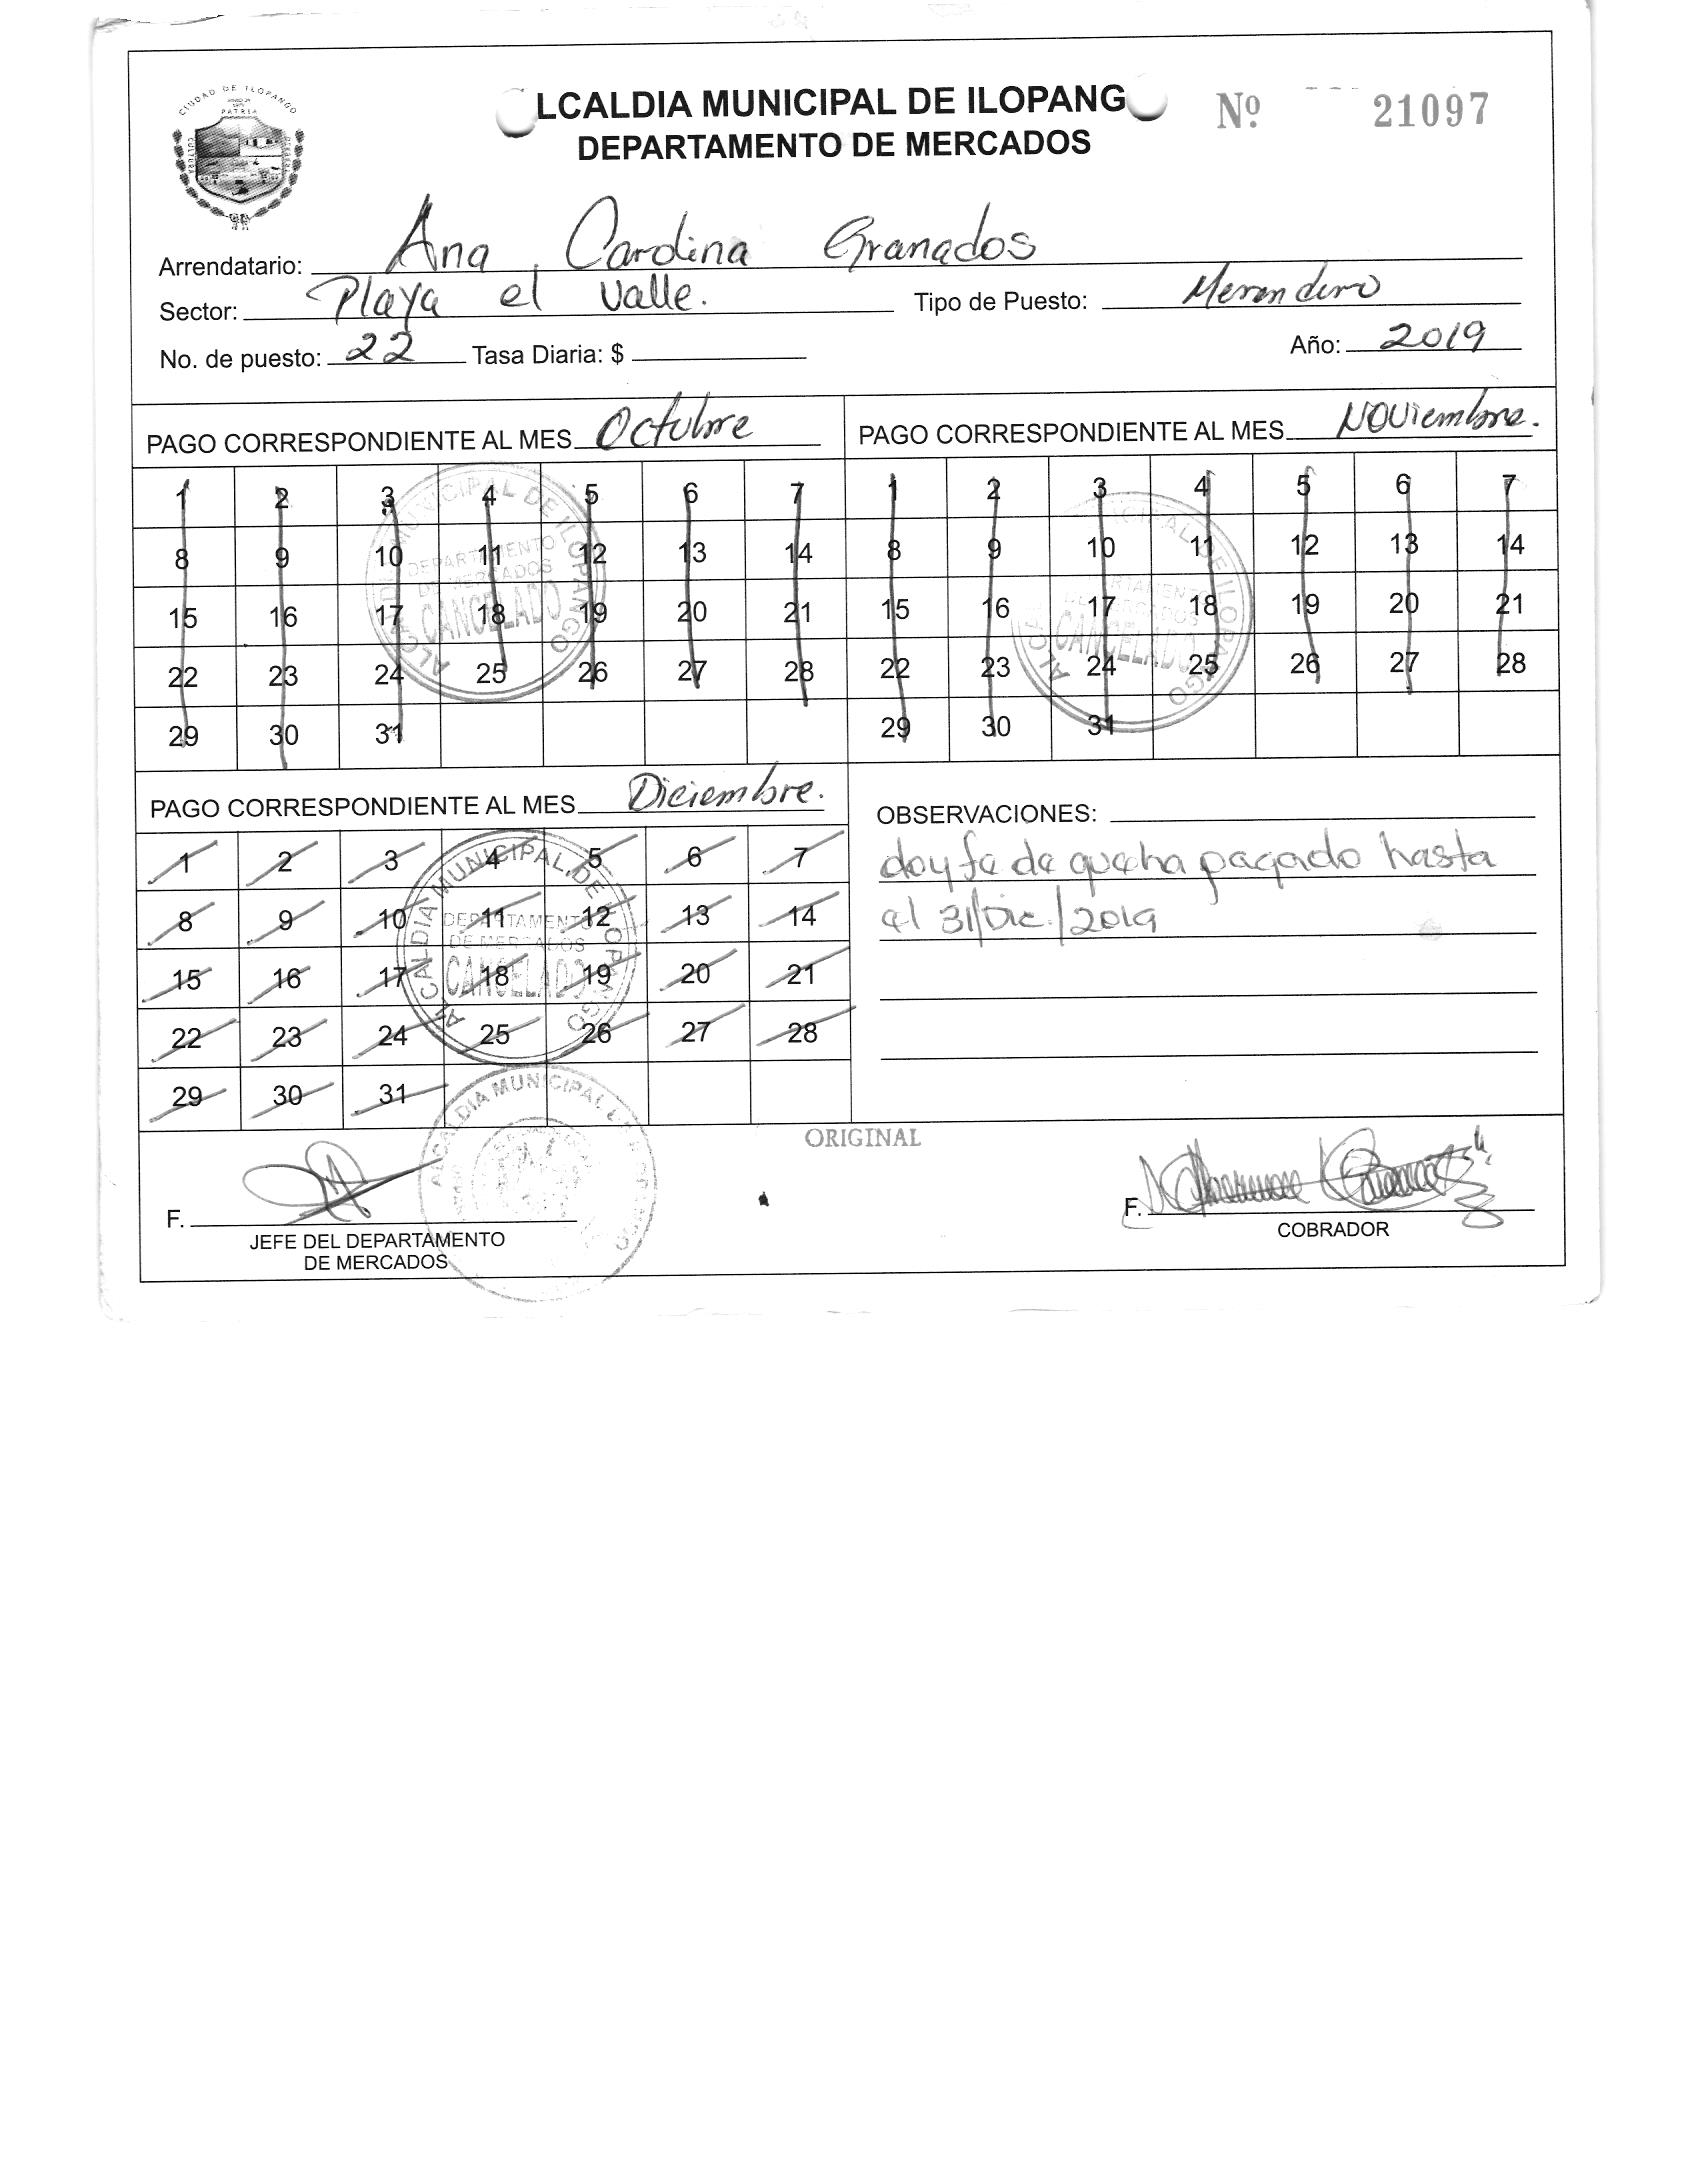 CIUDAD DE ILOPANGO
LCALDIA MUNICIPAL DE ILOPANG
Nº 21097
DEPARTAMENTO DE MERCADOS
Arrendatario: Ana Carolina Granados
Sector: Playa el valle. Tipo de Puesto: Merendero
No. de puesto: 22 Tasa Diaria: $ Año: 2019
PAGO CORRESPONDIENTE AL MES Octubre
1 2 3 4 5 6 7
8 9 10 11 12 13 14
15 16 17 18 19 20 21
22 23 24 25 26 27 28
29 30 31
ALCALDIA MUNICIPAL DE ILOPANGO
DEPARTAMENTO
DE MERCADOS
CANCELADO
PAGO CORRESPONDIENTE AL MES Noviembre.
1 2 3 4 5 6 7
8 9 10 11 12 13 14
15 16 17 18 19 20 21
22 23 24 25 26 27 28
29 30 31
CANCELADO
PAGO CORRESPONDIENTE AL MES Diciembre.
1 2 3 4 5 6 7
8 9 10 11 12 13 14
15 16 17 18 19 20 21
22 23 24 25 26 27 28
29 30 31
ALCALDIA MUNICIPAL DE ILOPANGO
DEPARTAMENTO
DE MERCADOS
CANCELADO
OBSERVACIONES:
doy fe de que ha pagado hasta
el 31/Dic./2019
ORIGINAL
ALCALDIA MUNICIPAL
F.
JEFE DEL DEPARTAMENTO
DE MERCADOS
F.
COBRADOR